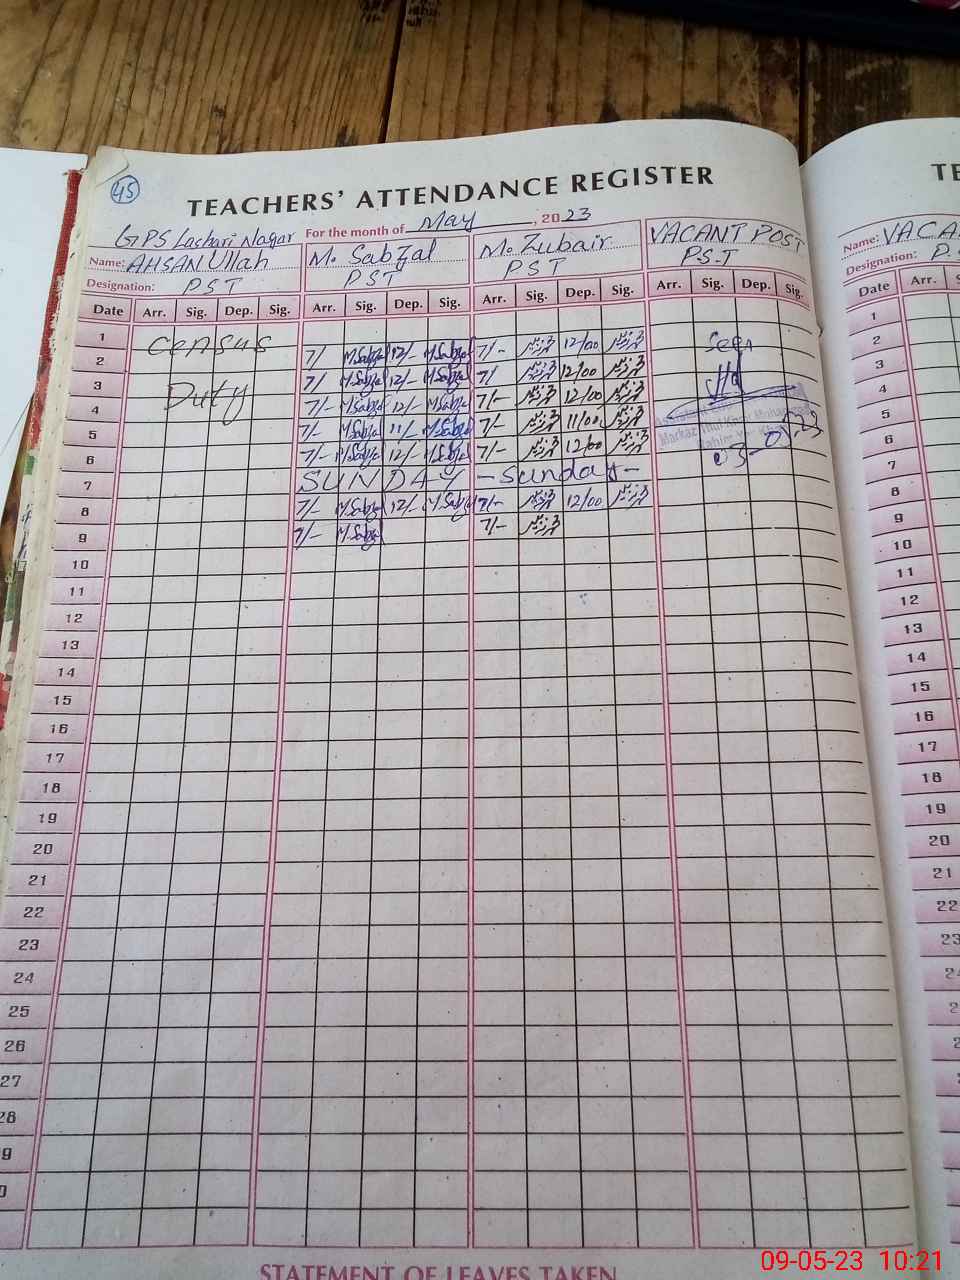 45
TEACHERS' ATTENDANCE REGISTER
GPS Lashari Nagar For the month of May, 2023
Name: AHSAN Ullah M. Sabzal M. Zubair VACANT POST
Designation: PST PST PST PS.T
Date Arr. Sig. Dep. Sig. Arr. Sig. Dep. Sig. Arr. Sig. Dep. Sig. Arr. Sig. Dep. Sig.
1 Census
2 7/- M.Sabzal 12/- M.Sabzal 7/- 12/00 Seen
3 Duty 7/- M.Sabzal 12/- M.Sabzal 7/ 12/00
4 7/- M.Sabzal 12/- M.Sabzal 7/- 12/00
5 7/- M.Sabzal 11/- M.Sabzal 7/- 11/00
6 7/- M.Sabzal 12/- M.Sabzal 7/- 12/00
7 SUNDAY - Sunday -
8 7/- M.Sabzal 12/- M.Sabzal 7/- 12/00
9 7/- M.Sabzal 7/-
10
11
12
13
14
15
16
17
18
19
20
21
22
23
24
25
26
27
28
9
0
STATEMENT OF LEAVES TAKEN
TE
Name: VACA
Designation: P.
Date Arr.
1
2
3
4
5
6
7
8
9
10
11
12
13
14
15
16
17
18
19
20
21
22
23
24
2
2
09-05-23 10:21